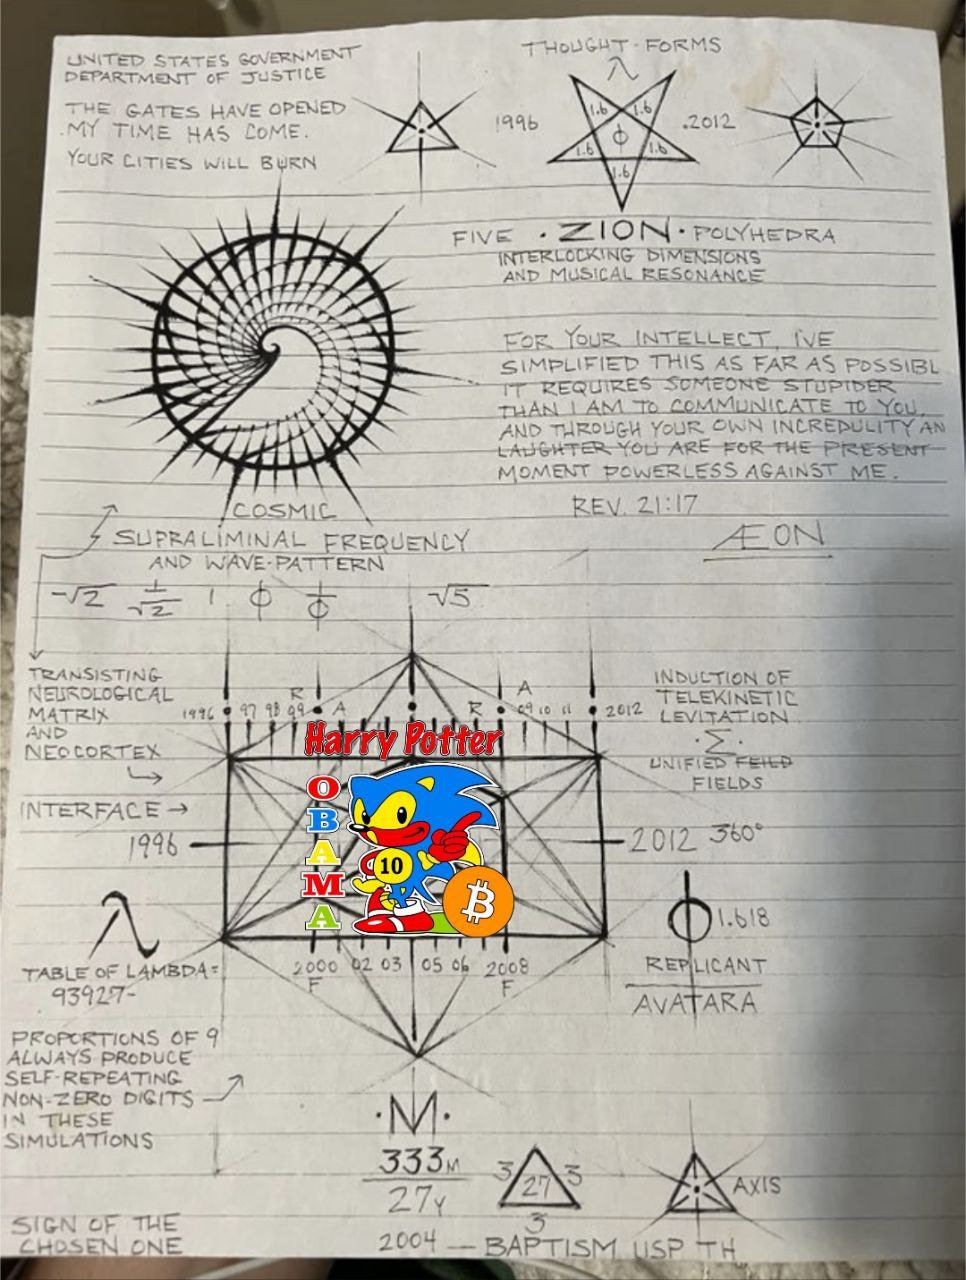 UNITED STATES GOVERNMENT
DEPARTMENT OF JUSTICE
THE GATES HAVE OPENED
MY TIME HAS COME.
YOUR CITIES WILL BURN
THOUGHT-FORMS
1996
1.6 1.6
1.6 ϕ 1.6
1.6
.2012
FIVE · ZION · POLYHEDRA
INTERLOCKING DIMENSIONS
AND MUSICAL RESONANCE
FOR YOUR INTELLECT, I'VE
SIMPLIFIED THIS AS FAR AS POSSIBL
IT REQUIRES SOMEONE STUPIDER
THAN I AM TO COMMUNICATE TO YOU,
AND THROUGH YOUR OWN INCREDULITY AN
LAUGHTER YOU ARE FOR THE PRESENT
MOMENT POWERLESS AGAINST ME.
REV. 21:17
ÆON
COSMIC
SUPRALIMINAL FREQUENCY
AND WAVE-PATTERN
√2 1/√2 1 ϕ 1/ϕ √5
TRANSISTING
NEUROLOGICAL
MATRIX
AND
NEOCORTEX
INTERFACE →
R A R A
1996 97 98 99 09 10 11 2012
Harry Potter
OBAMA
10
₿
1996
2012 360°
INDUCTION OF
TELEKINETIC
LEVITATION
·Σ·
UNIFIED FEILD
FIELDS
λ
TABLE OF LAMBDA=
93927-
2000 02 03 05 06 2008
F F
ϕ 1.618
REPLICANT
AVATARA
PROPORTIONS OF 9
ALWAYS PRODUCE
SELF-REPEATING
NON-ZERO DIGITS
IN THESE
SIMULATIONS
·M·
333M
27Y
3 27 3
3
AXIS
SIGN OF THE
CHOSEN ONE
2004 — BAPTISM USP TH